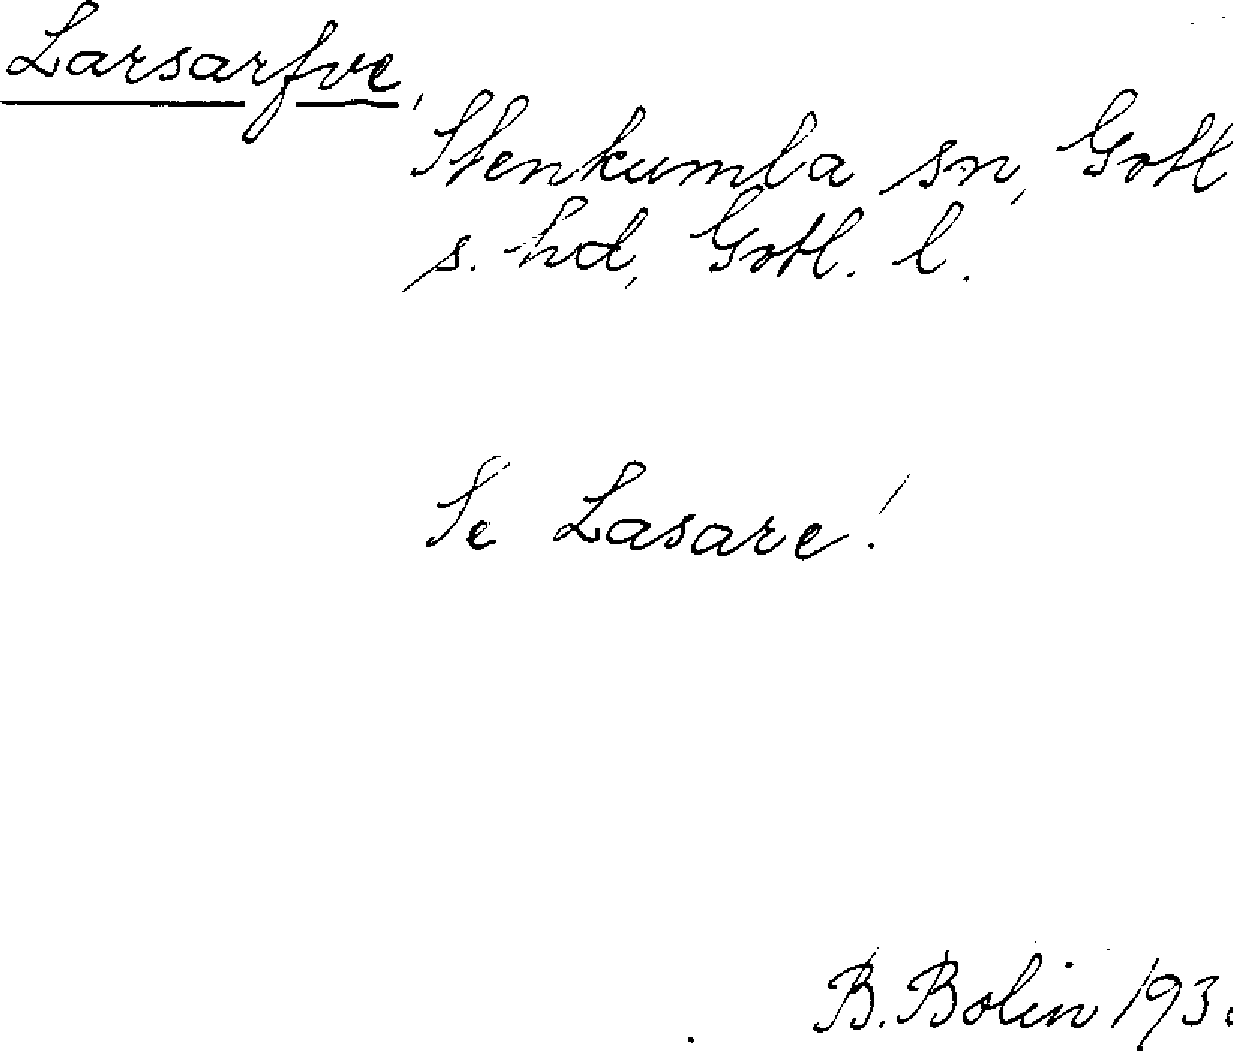 Larsarfve,
Stenkumla sn, Gotl
s. hd, Gotl. l.
Se Lasare!
B. Bolin 193